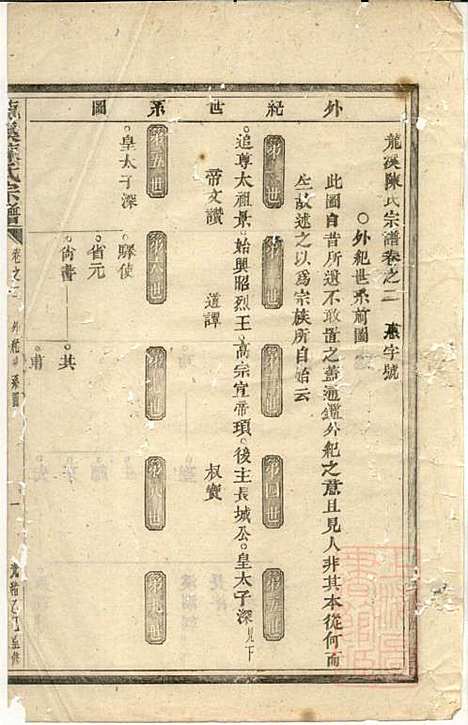 外紀世系圖
龍溪陳氏宗譜卷之二 惠字號
○外紀世系前圖
此圖自昔所遺不敢置之蓋通鑑外紀之意且見人非其本從何而
生故述之以為宗族所自始云
第一世 第二世 第三世 第四世 第五世
追尊太祖景。始興昭烈王。高宗宣帝頊。後主長城公。皇太子深見下
帝文讚 道譚 叔寶
第五世 第六世 第七世 第八世 第九世
皇太子深
驛使
省元
尚書 其
甫
龍溪陳氏宗譜 卷之二 外紀世系圖 一 光緒乙巳重修